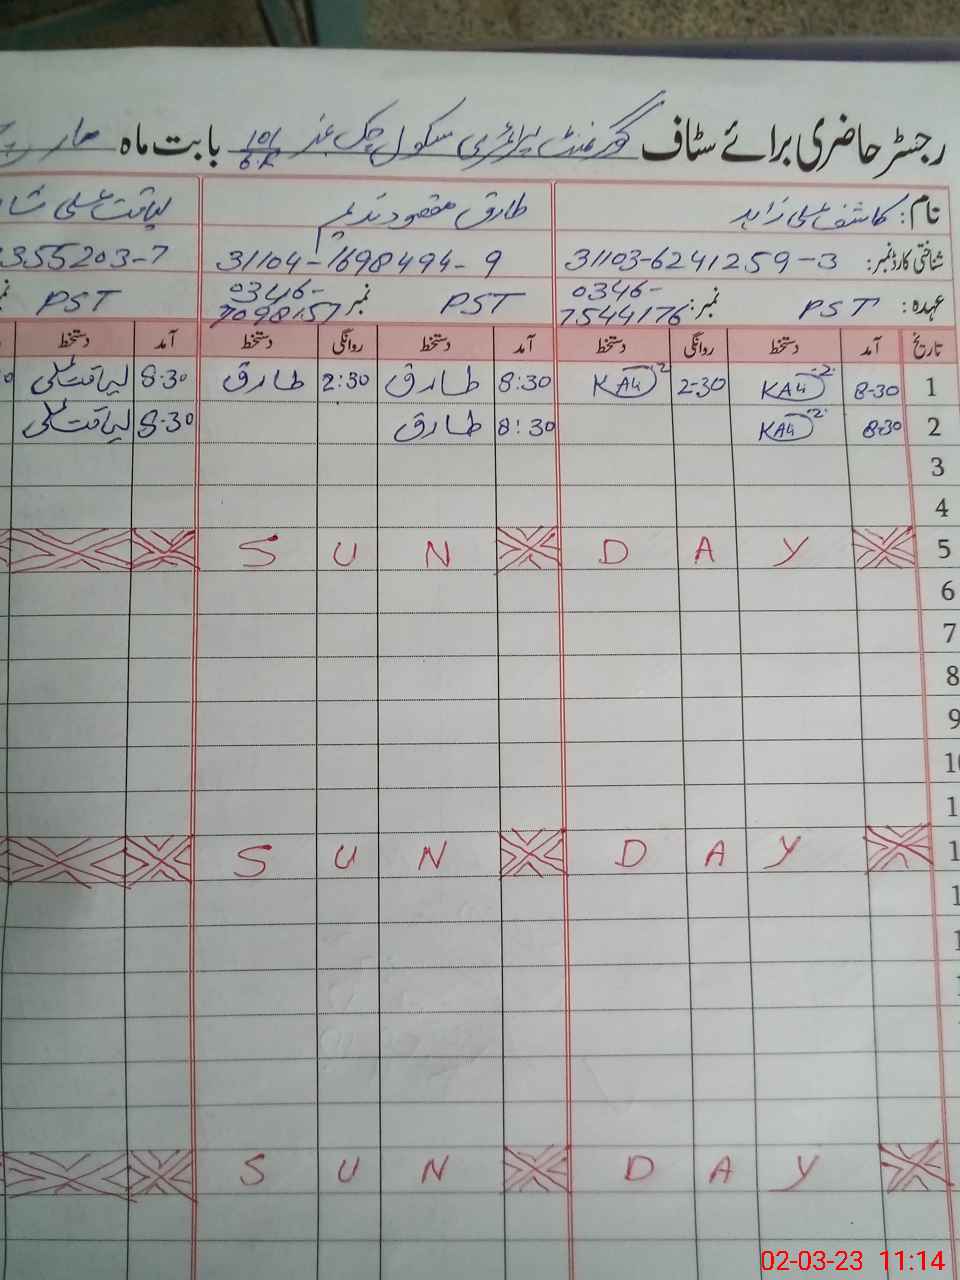 رجسٹر حاضری برائے سٹاف گورنمنٹ پرائمری سکول چک نمبر 101/6R بابت ماہ مارچ
نام: کاشف علی زاہد طارق مقصود ندیم لیاقت علی
شناختی کارڈ نمبر: 31103-6241259-3 31104-1698494-9 355203-7
عہدہ: PST نمبر: 0346-7544176 PST نمبر 0346-7098157 PST
تاریخ آمد دستخط روانگی دستخط آمد دستخط روانگی دستخط آمد دستخط
1 8-30 KAU 2-30 KAU 8:30 طارق 2:30 طارق 8-30 لیاقت علی
2 8-30 KAU 8:30 طارق 8-30 لیاقت علی
3
4
5 S U N D A Y
6
7
8
9
10
1
1 S U N D A Y
1
1
1
S U N D A Y
02-03-23 11:14